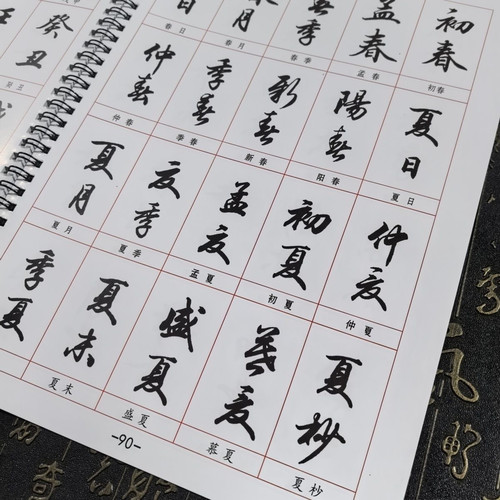 癸丑
癸丑
日
月
季
孟春
初春
春日
春月
春季
孟春
初春
仲春
季春
新春
陽春
夏日
仲春
季春
新春
阳春
夏日
夏月
夏季
孟夏
初夏
仲夏
夏月
夏季
孟夏
初夏
仲夏
季夏
夏末
盛夏
慕夏
夏杪
夏末
盛夏
慕夏
夏杪
-90-